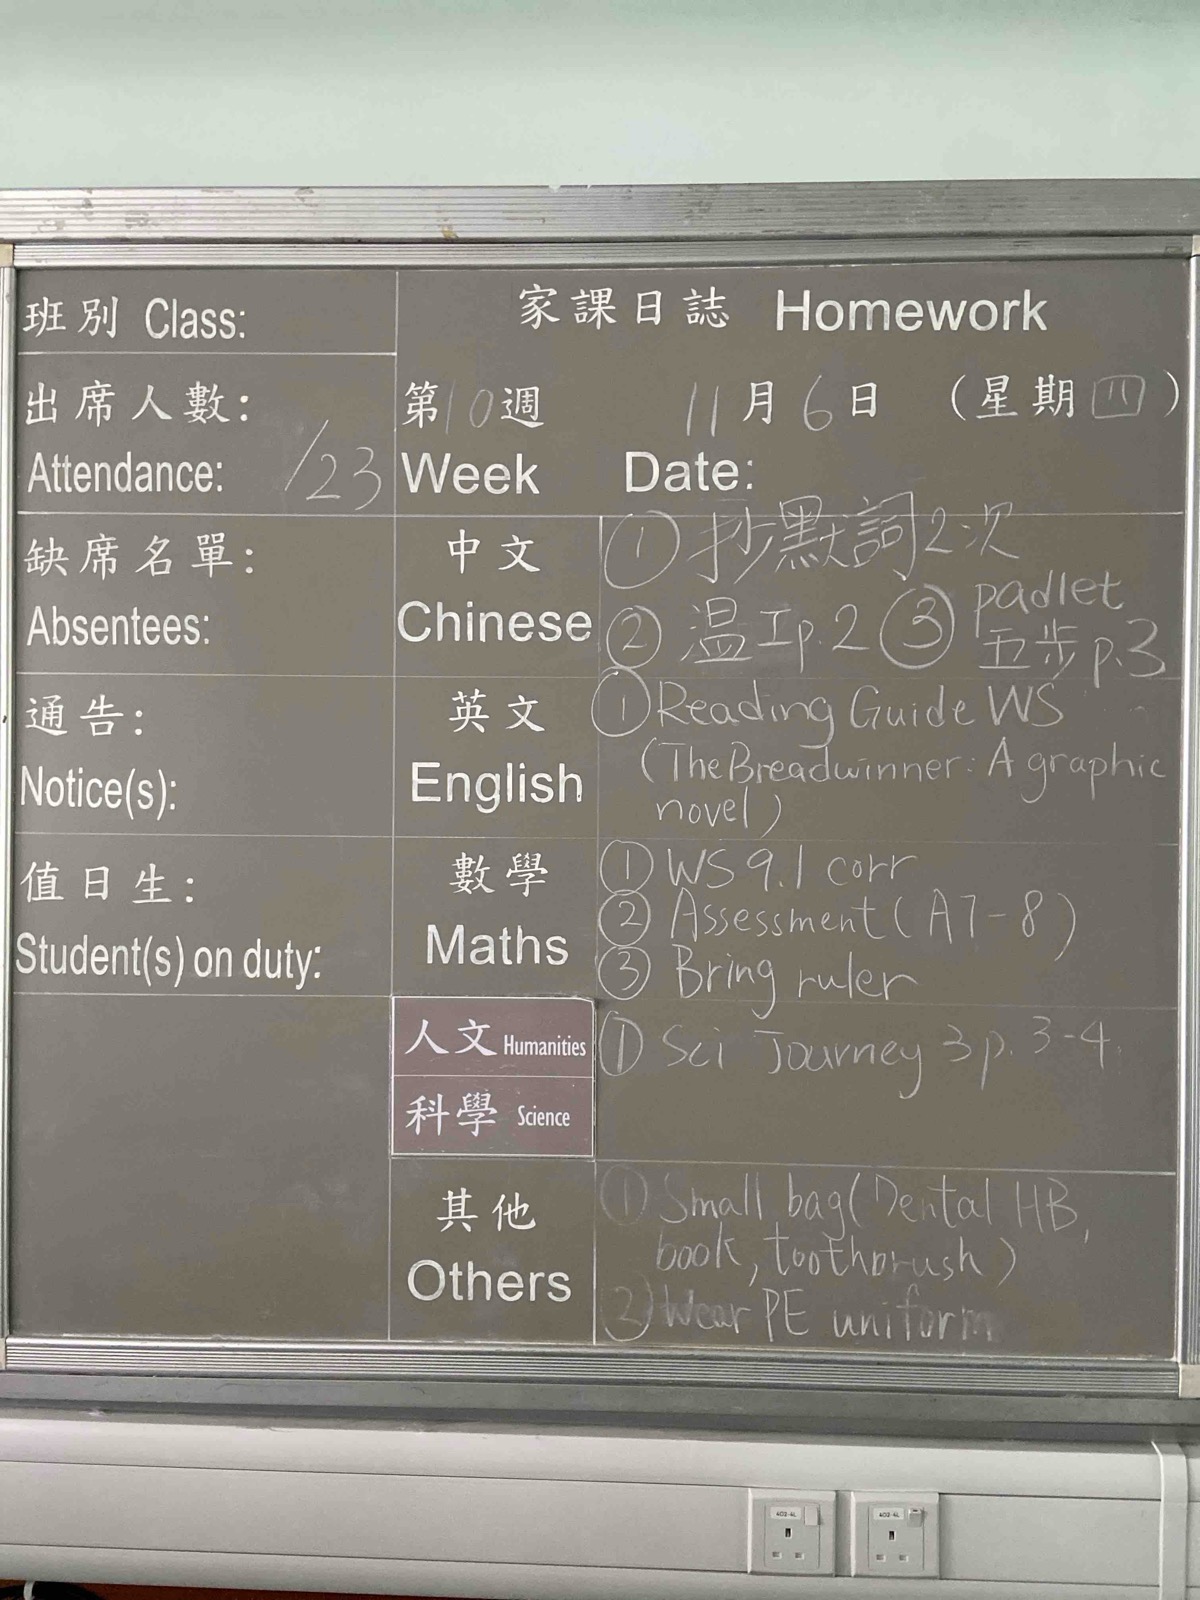 班別 Class:
家課日誌 Homework
出席人數:
Attendance: /23
第10週 11月6日 (星期四)
Week Date:
缺席名單:
Absentees:
中文
Chinese
① 抄默詞2次
② 温工p.2 ③ padlet
五步p.3
通告:
Notice(s):
英文
English
① Reading Guide WS
(The Breadwinner: A graphic
novel)
值日生:
Student(s) on duty:
數學
Maths
① WS 9.1 corr
② Assessment (A7-8)
③ Bring ruler
人文 Humanities
科學 Science
① Sci Journey 3 p. 3-4
其他
Others
① Small bag (Dental HB,
book, toothbrush)
② Wear PE uniform
402-4L
402-4L